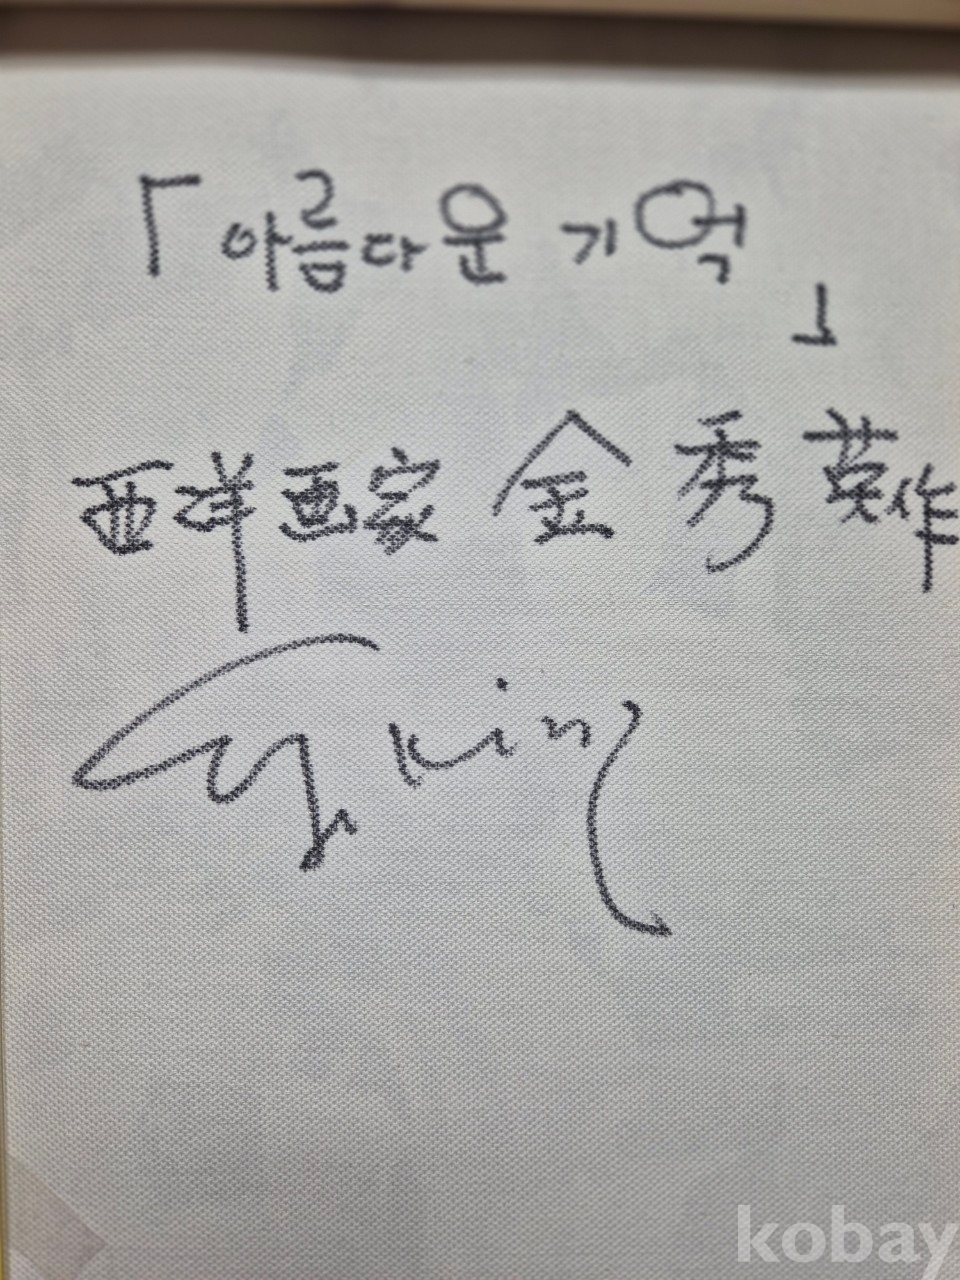 「아름다운 기억」
西洋画家 金秀英作
kim
kobay